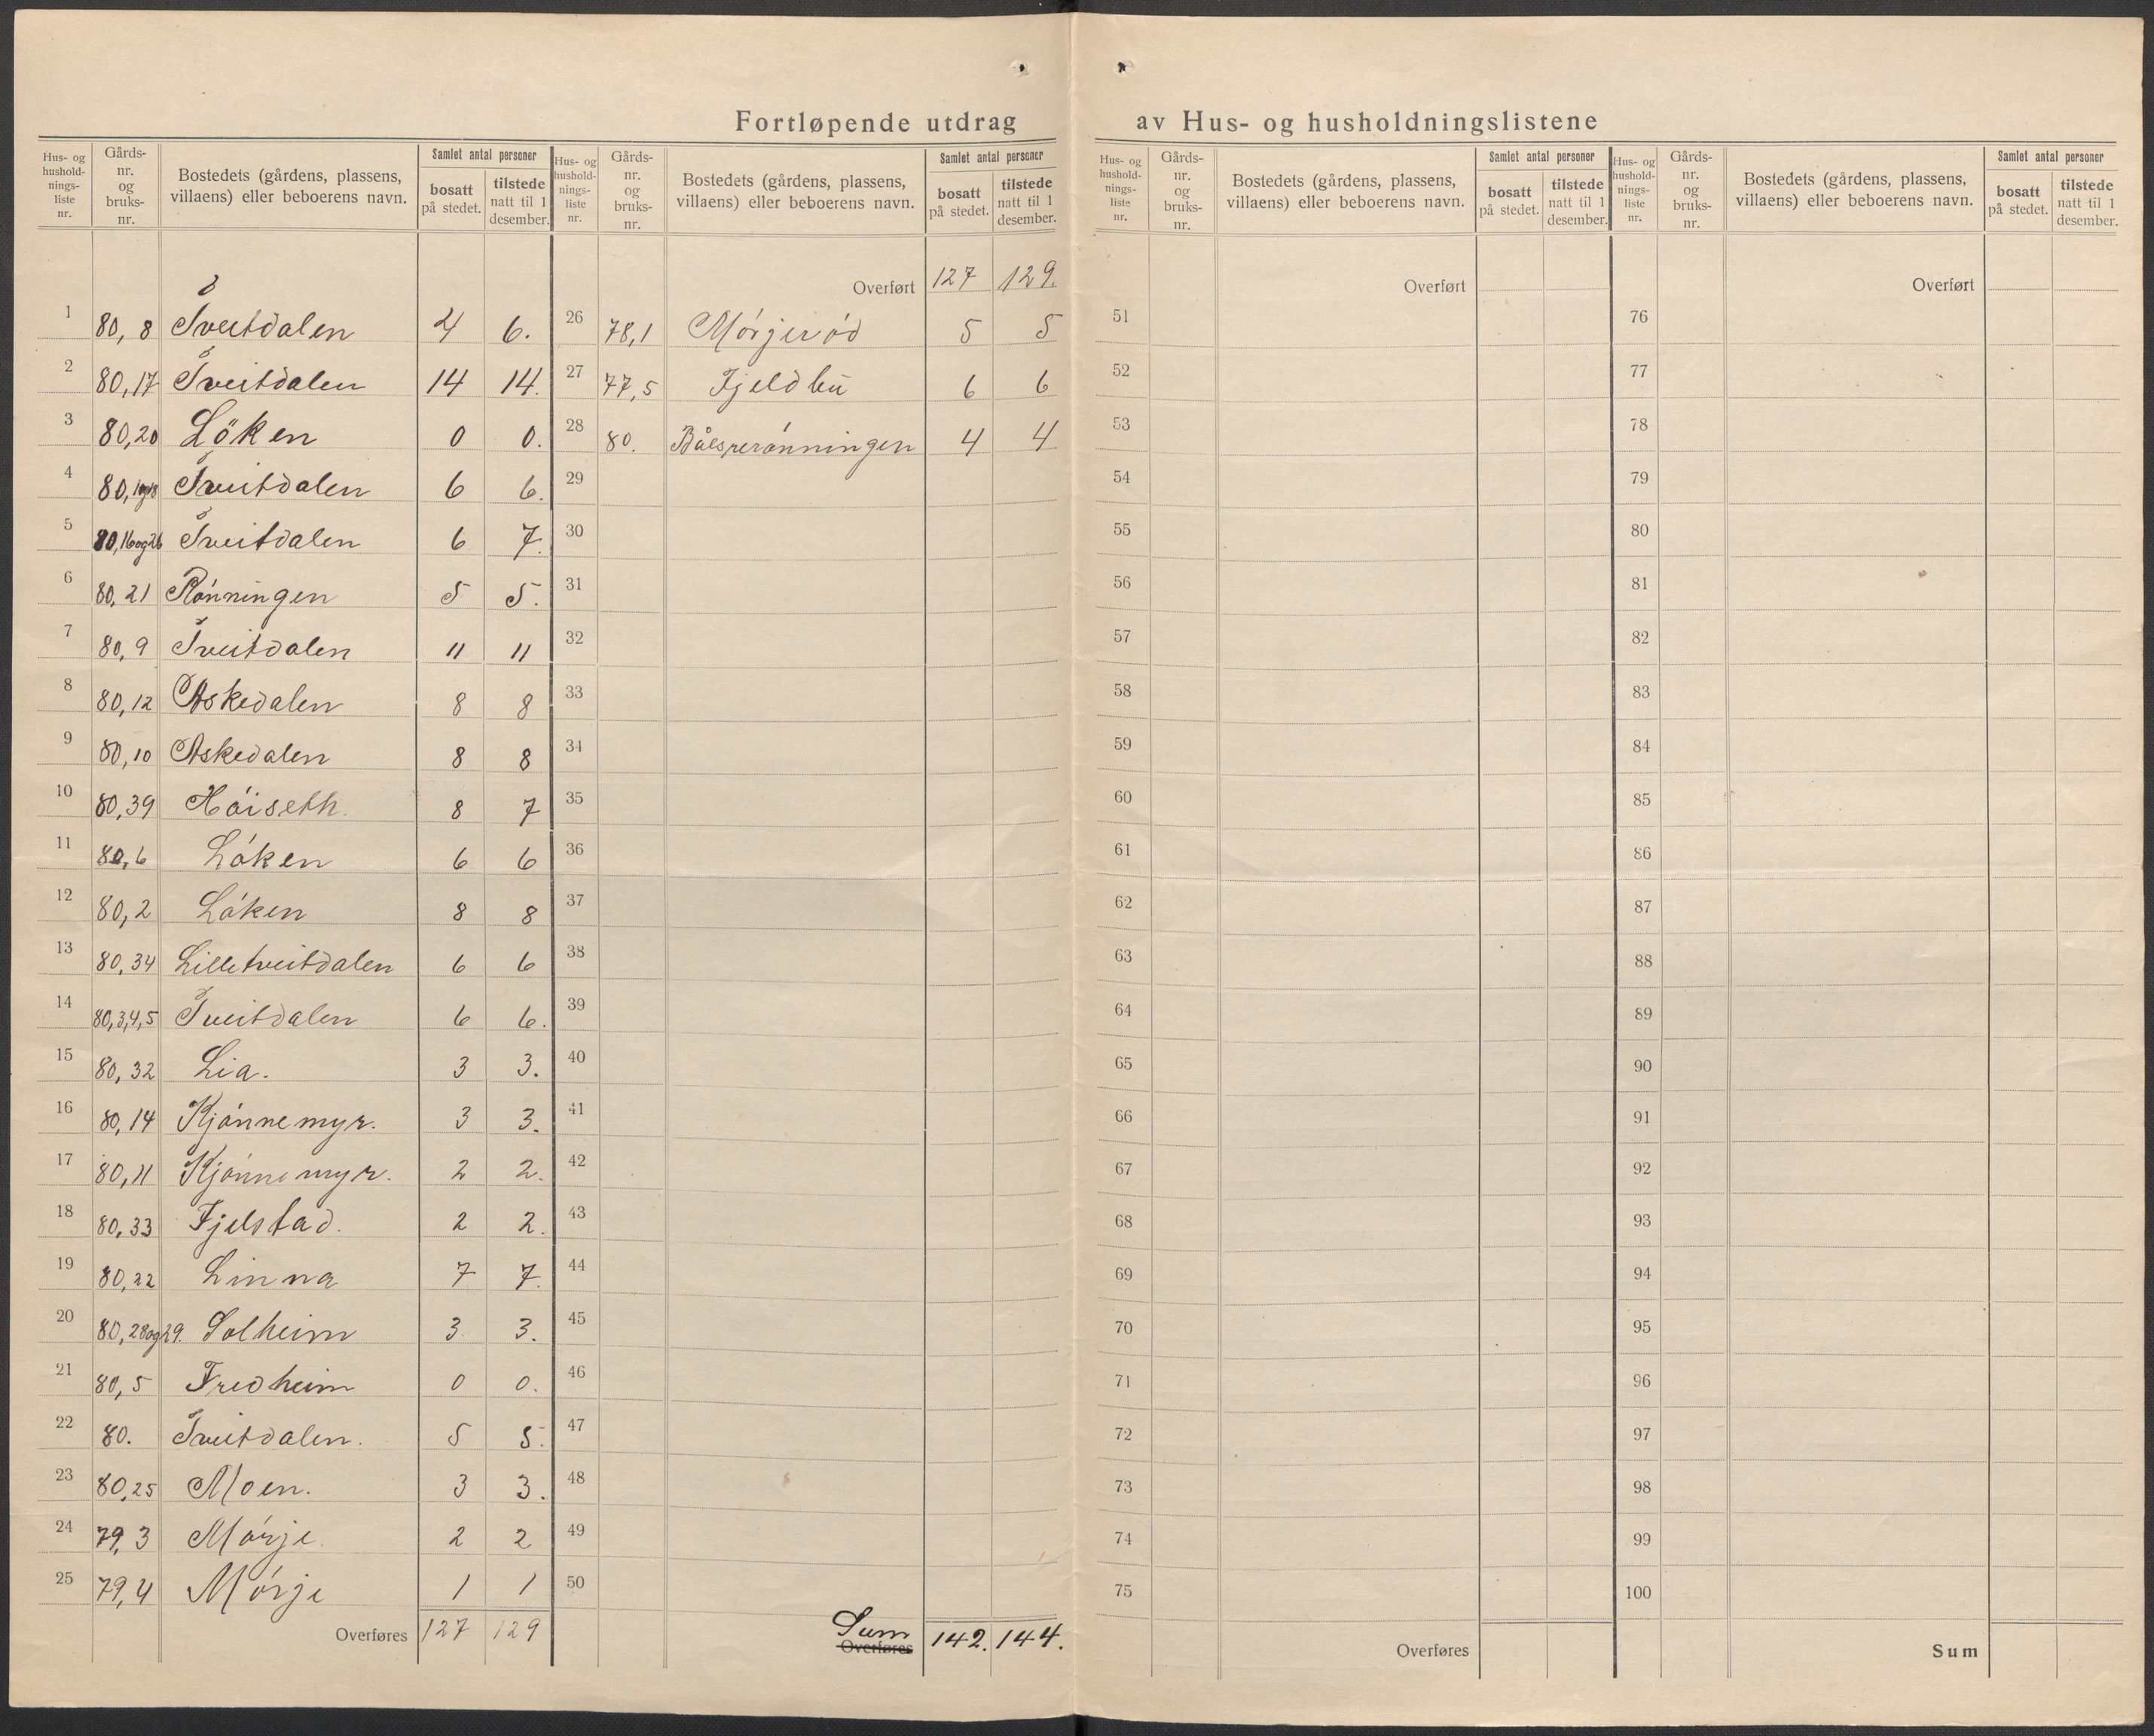 Fortløpende utdrag av Hus- og husholdningslistene
Hus- og hushold- nings- liste nr. | Gårds- nr. og bruks- nr. | Bostedets (gårdens, plassens, villaens) eller beboerens navn. | Samlet antal personer | bosatt på stedet. | tilstede natt til 1 desember.
1 80, 8 Tveitdalen 4 6.
2 80,17 Tveitdalen 14 14.
3 80,20 Löken 0 0.
4 80, Tveitdalen 6 6.
5 80,16og26 Tveitdalen 6 7.
6 80, 21 Rónningen 5 5.
7 80, 9 Tveitdalen 11 11
8 80, 12 Askedalen 8 8
9 80, 10 Askedalen 8 8
10 80, 39 Hóiseth. 8 7
11 80, 6 Lóken 6 6
12 80, 2 Lóken 8 8
13 80, 34 Lilletveitdalen 6 6
14 80,3,4,5 Tveitdalen 6 6.
15 80, 32 Lia. 3 3.
16 80, 14 Kjónnemyr. 3 3.
17 80, 11 Kjónnemyr. 2 2.
18 80, 33 Fjelstad. 2 2.
19 80, 22 Linna 7 7.
20 80, 28og29. Solheim 3 3.
21 80, 5 Fredheim 0 0.
22 80. Tveitdalen. 5 5.
23 80,25 Moen. 3 3.
24 79, 3 Mórje. 2 2
25 79, 4 Mórje 1 1
Overføres 127 129
Hus- og hushold- nings- liste nr. | Gårds- nr. og bruks- nr. | Bostedets (gårdens, plassens, villaens) eller beboerens navn. | Samlet antal personer | bosatt på stedet. | tilstede natt til 1 desember.
Overført 127 129.
26 78,1 Mórjeród 5 5
27 77,5 Fjeldbu 6 6
28 80. 4 4
29
30
31
32
33
34
35
36
37
38
39
40
41
42
43
44
45
46
47
48
49
50
Overføres Sum 142. 144.
Hus- og hushold- nings- liste nr. | Gårds- nr. og bruks- nr. | Bostedets (gårdens, plassens, villaens) eller beboerens navn. | Samlet antal personer | bosatt på stedet. | tilstede natt til 1 desember.
Overført
51
52
53
54
55
56
57
58
59
60
61
62
63
64
65
66
67
68
69
70
71
72
73
74
75
Overføres
Hus- og hushold- nings- liste nr. | Gårds- nr. og bruks- nr. | Bostedets (gårdens, plassens, villaens) eller beboerens navn. | Samlet antal personer | bosatt på stedet. | tilstede natt til 1 desember.
Overført
76
77
78
79
80
81
82
83
84
85
86
87
88
89
90
91
92
93
94
95
96
97
98
99
100
Sum